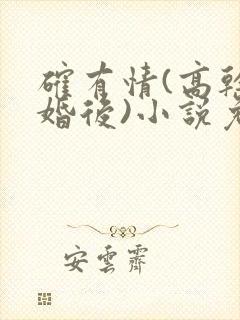 確有情(高幹
婚後)小說
安雲霽